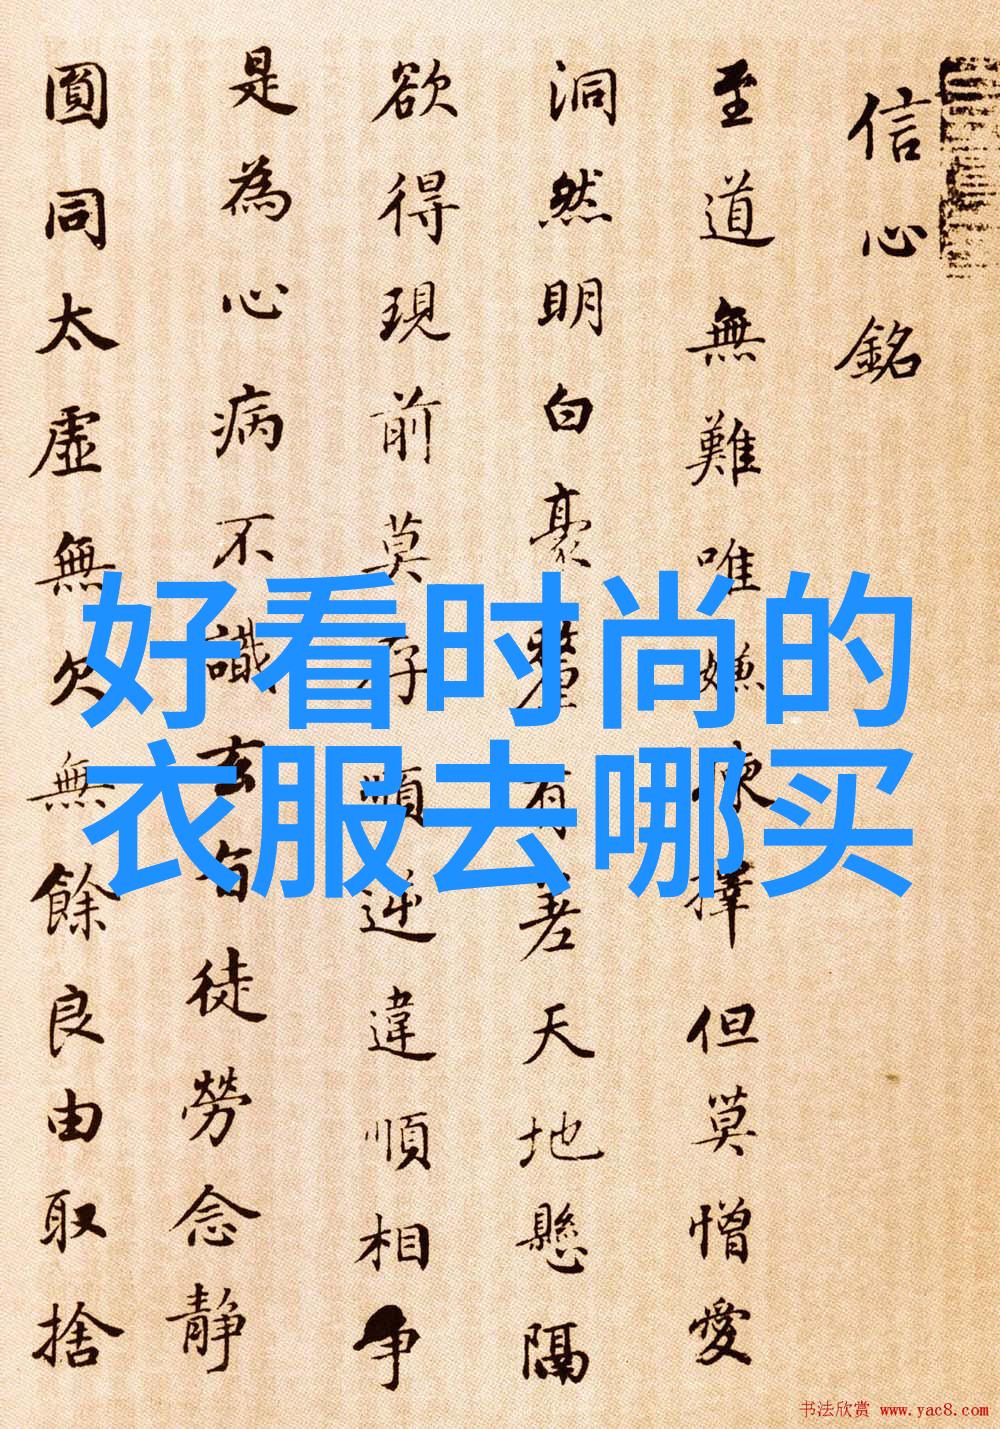 信心銘
至道無難唯嫌揀擇但莫憎愛
洞然明白豪釐有差天地懸隔
欲得現前莫存順逆違順相争
是為心病不識玄旨徒勞念静
圓同太虛無欠無餘良由取捨
好看时尚的
衣服去哪买
书法欣赏 www.yac8.com